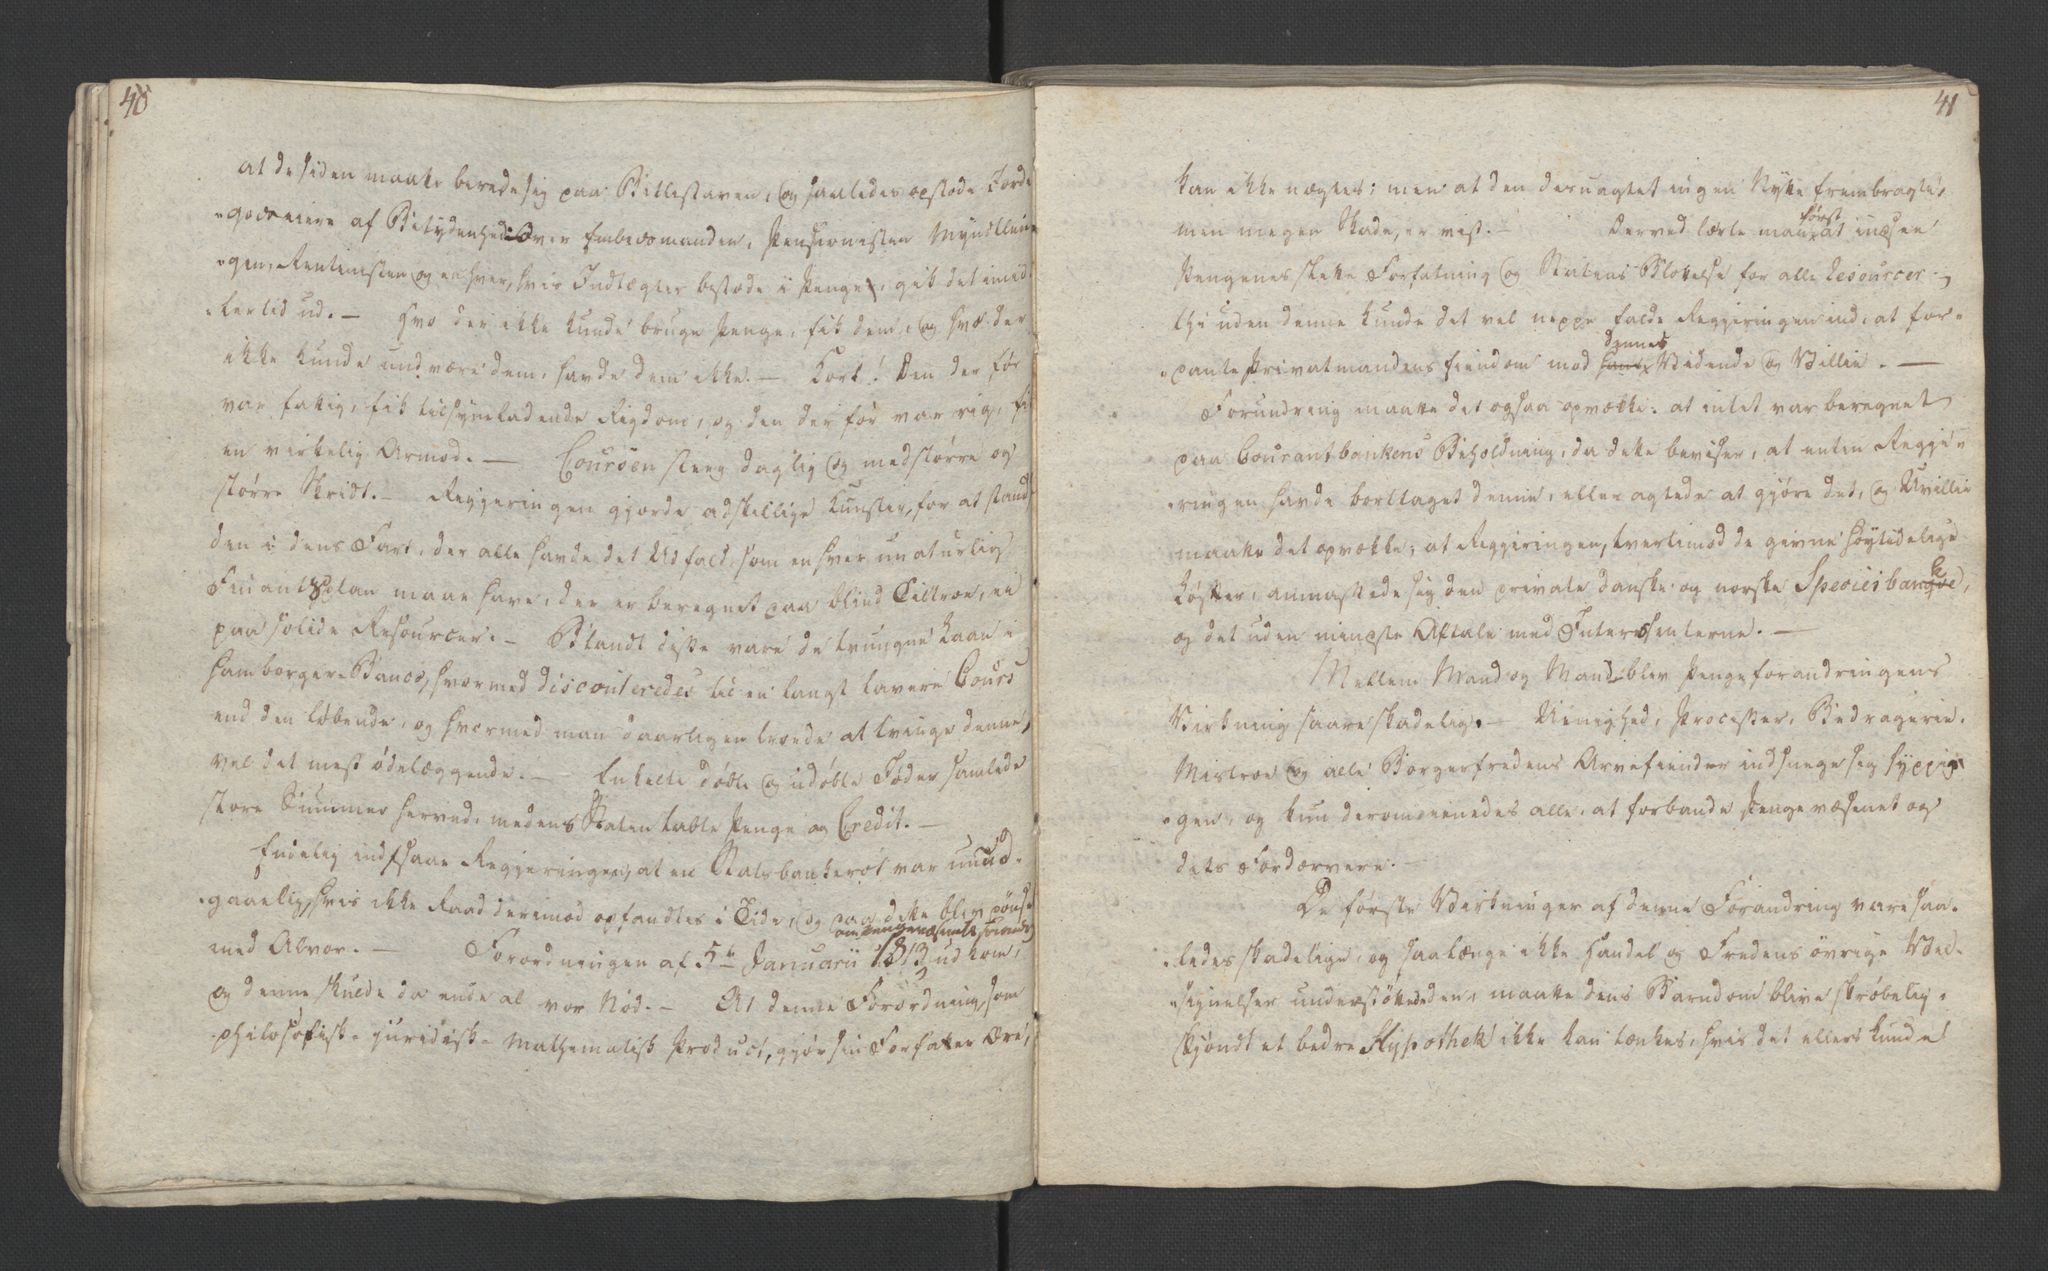 40
at de siden maatte berede sig paa Bettelstaven, og saaledes opstode Jorde
-godseiere af Betydenhed. Over Embedsmanden, Pensionisten Myndlin-
-gen, Rentenisten og enhver, hvis Indtægter bestode i Penge, gik det imid
-lertid ud. — Hvo der ikke kunde bruge Penge, fik dem, og hvo der
ikke kunde undvære dem, havde dem ikke. — Kort! Den der før
var fattig, fik tilsyneladende Rigdom, og den der før var rig, fik
en virkelig Armod. — Coursen steeg daglig og med større og
større Skridt. — Regjeringen gjorde adskillige Kunster, for at stand
den i dens Fart, der alle havde det Udfald, som en hver unaturlig
Finantsplan maae have, der er beregnet paa blind Tiltroe, ei
paa solide Resourcer. — Blandt disse vare de tvungne Laan i
Hamborger-Banco, hvormed disconteredes til en langt lavere Cours
end den løbende, og hvormed man daarligen troede at tvinge denne,
vel det mest ødelæggende. — Enkelte døbte og udøbte Jøder samlede
store Summer herved, medens Staten tabte Penge og Credit. —
Endelig indsaae Regjeringen, at en Statsbankerot var uund-
-gaaelig, hvis ikke Raad derimod opfandtes i Tide, og paa dette blev pönset
med Alvor. — Forordningen af 5te Januarii 1813 om Pengevæsenets Forandr udkom,
og denne skulde da ende al vor Nød. — At denne Forordning, som
philosofisk-juridisk-mathematisk Product, gjør sin Forfatter Ære,
41
kan ikke nægtes; men at den deruagtet ingen Nytte frembragte,
men megen Skade, er vist. — Derved lærte man først at indsee
Pengenes slette Forfatning og Statens Blottelse for alle Resourcer —
thi uden denne kunde det vel neppe falde Regjeringen ind, at for-
-pante Privatmandens Eiendom mod hans dennes Vidende og Villie. —
Forundring maatte det ogsaa opvække, at intet var beregnet
paa Courantbankens Beholdning, da dette beviser, at enten Regje-
-ringen havde borttaget denne, eller agtede at gjöre det, og Uvillie
maatte det opvække, at Regjeringen, tvertimod de givne høytidelige
Løfter, anmassede sig den private danske og norske Speciesbanqve,
og det uden mindste Aftale med Interessenterne. —
Mellem Mand og Mand blev Pengeforandringens
Virkning saare skadelig. — Uenighed, Processer, Bedragerie,
Mistroe og alle Borgerfredens Arvefiender indsnege sig hyppi
-gen, og kun derom eenedes alle, at forbande Pengevæsenet og
dets Fordærvere. —
De første Virkninger af denne Forandring vare saa-
-ledes skadelige, og saalænge ikke Handel og Fredens övrige Vel-
-signelser understöttede den, maatte dens Barndom blive skrøbelig,
skjøndt et bedre Hypothek ikke kan tænkes, hvis det ellers kunde